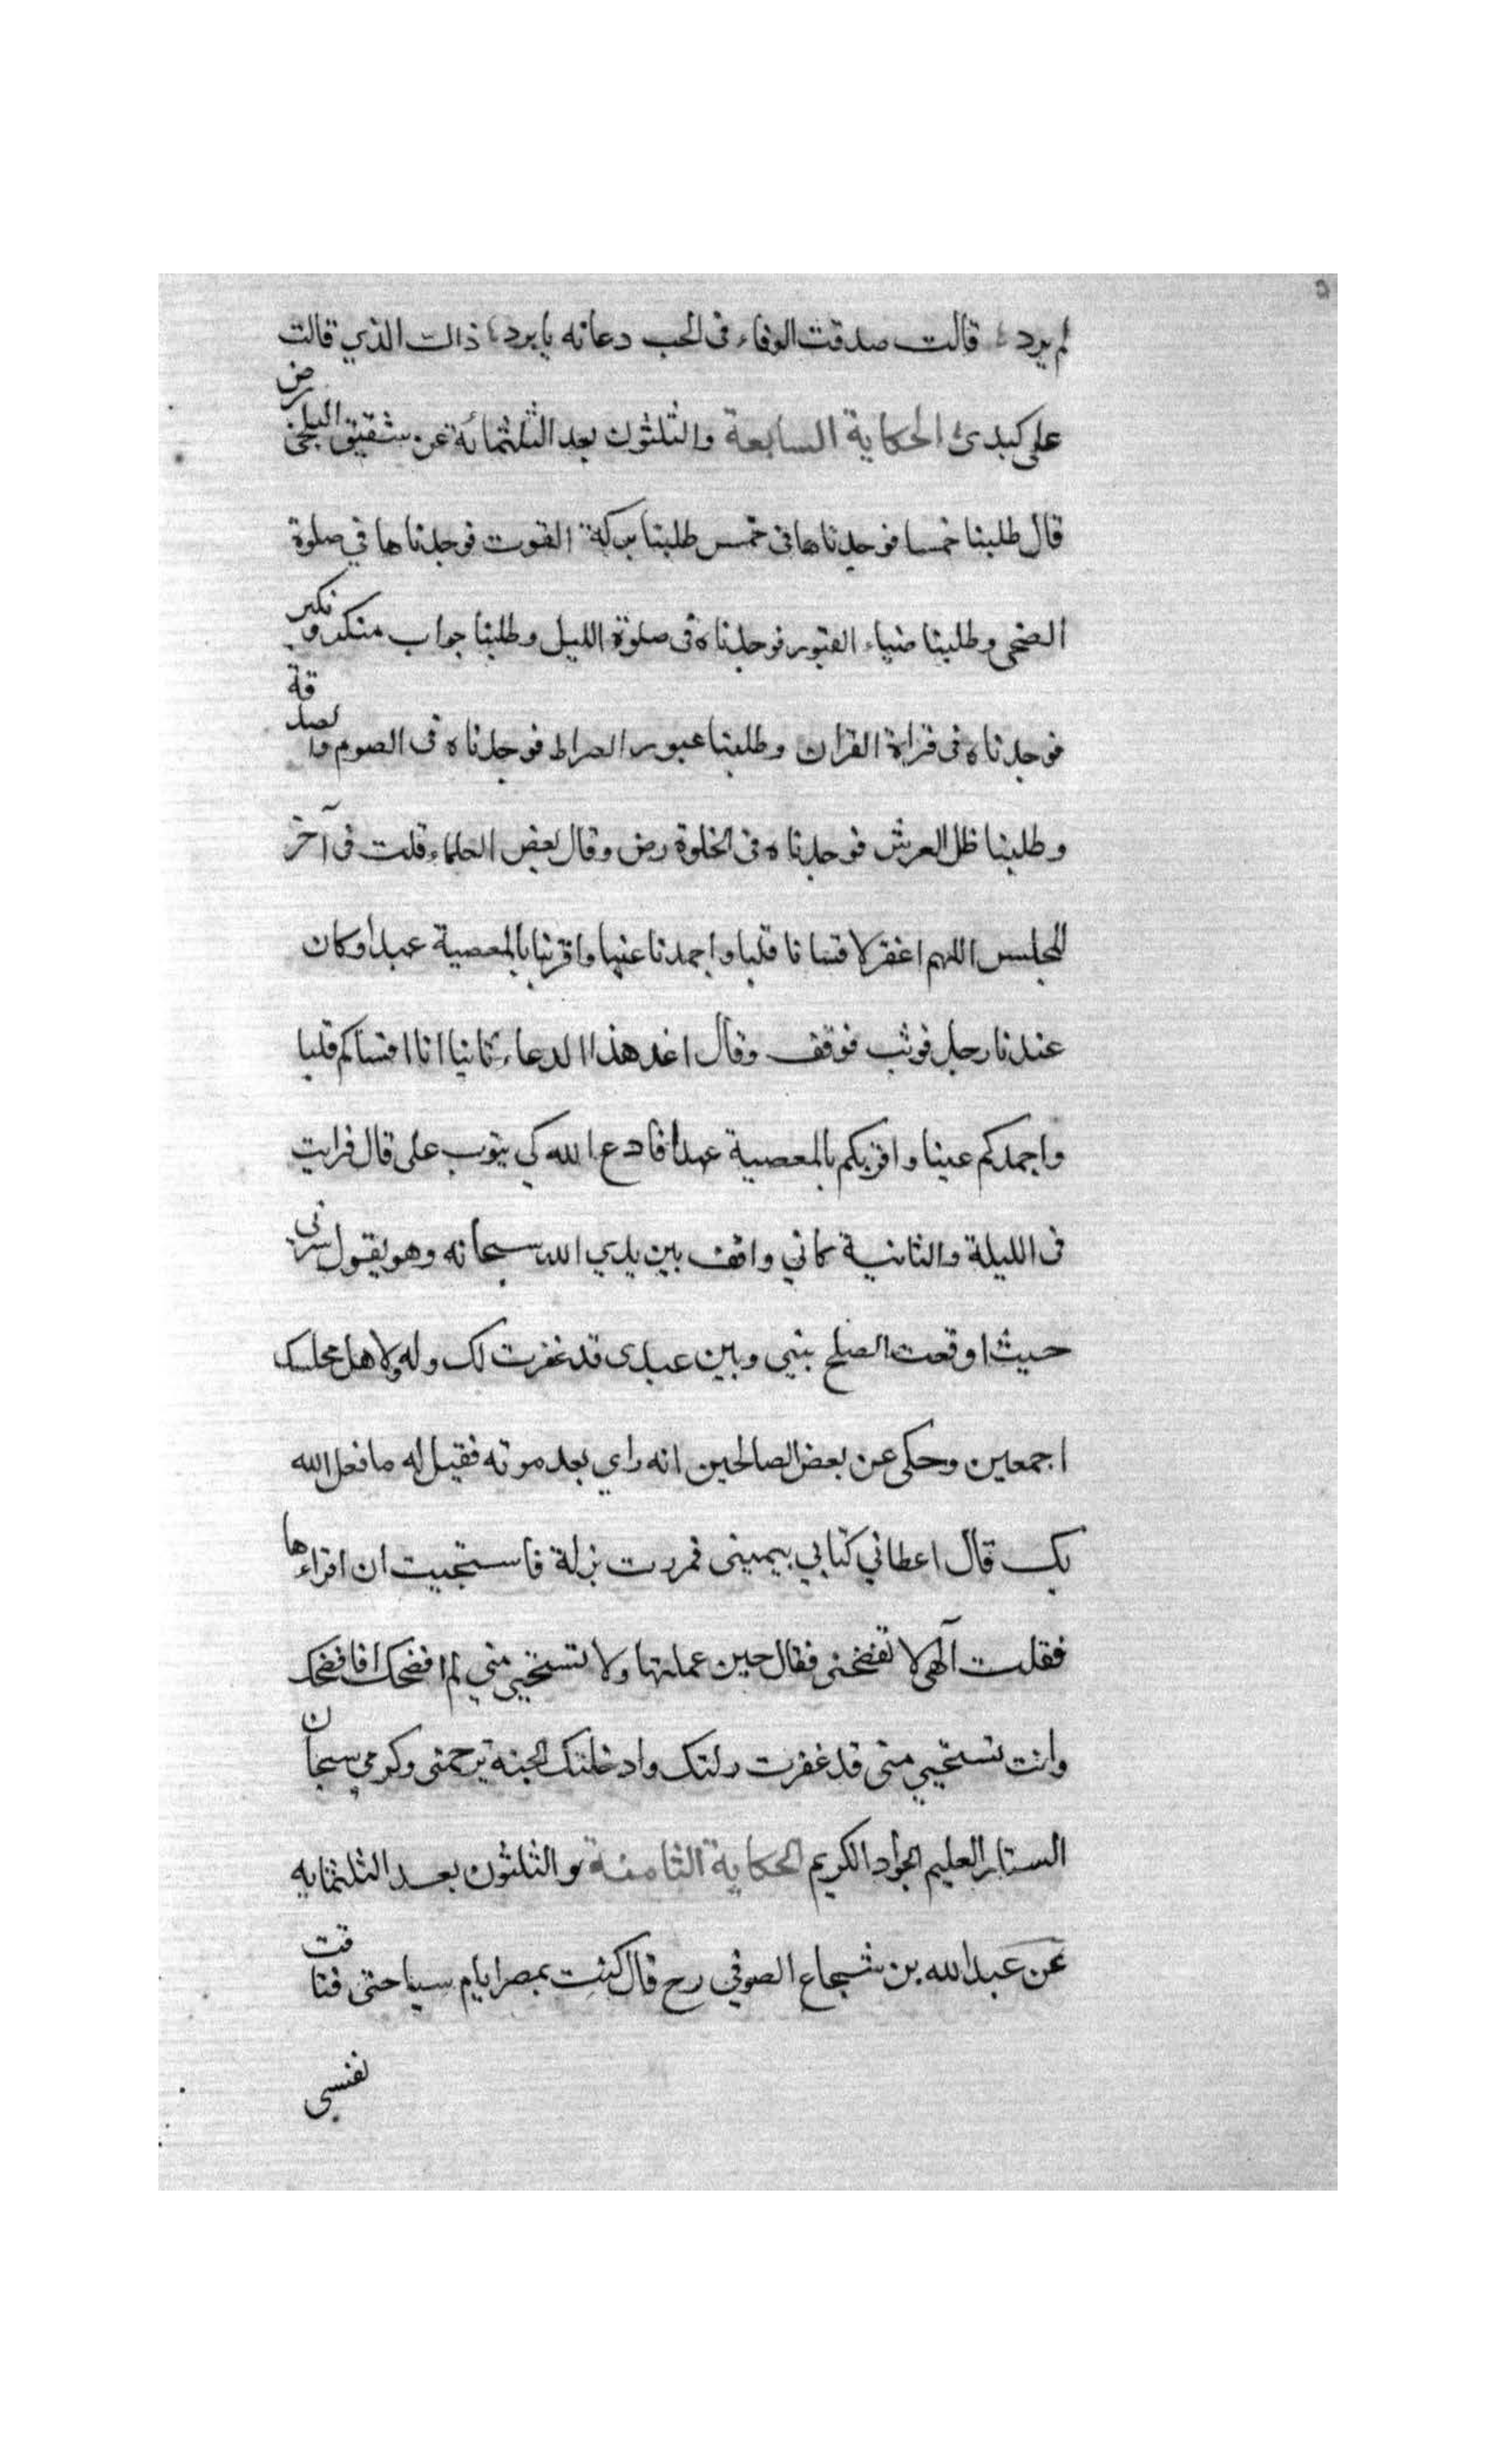 لم يرد قالت صدقت الوفاء فى الحب دعانه يا برد ذالت الذي قالت
على كبدى الحكاية السابعة والثلثون بعد الثلثمائة عن شقيق البلخى رض
قال طلبنا خمسا فوجدناها فى خمس طلبنا بركة القوت فوجدناها في صلوة
الضحى وطلبنا ضياء القبور فوجدناه فى صلوة الليل وطلبنا جواب منكر ونكير
فوجدناه فى قراءة القران وطلبنا عبور الصراط فوجدناه فى الصوم والصدقة
وطلبنا ظل العرش فوجدناه فى الخلوة رض وقال بعض العلماء قلت فى آخر
المجلس اللهم اغفر لاقسانا قلبا واجمدنا عينا واقربنا بالمعصية عهدا وكان
عندنا رجل فوثب فوقف وقال اعد هذا الدعاء ثانيا انا اقساكم قلبا
واجمدكم عينا واقربكم بالمعصية عهدا فادع الله كي يتوب على قال فرايت
فى الليلة والثانية كاني واقف بين يدي الله سبحانه وهو يقول سرنى
حيث اوقعت الصلح بينى وبين عبدى قد غفرت لك وله ولاهل مجلسك
اجمعين وحكى عن بعض الصالحين انه راي بعد موته فقيل له ما فعل الله
بك قال اعطاني كتابي بيمينى فمررت بزلة فاستحييت ان اقراءها
فقلت آلهى لا تفضحنى فقال حين عملتها ولا تستحيي مني لم افضحك افافضحك
وانت تستحيي منى قد غفرت زلتك وادخلتك الجنة برحمتى وكرمي سبحان
الستار العليم الجواد الكريم الحكاية الثامنة والثلثون بعد الثلثمايه
عن عبد الله بن شجاع الصوفي رح قال كنت بمصر ايام سياحتى فتاقت
نفسى